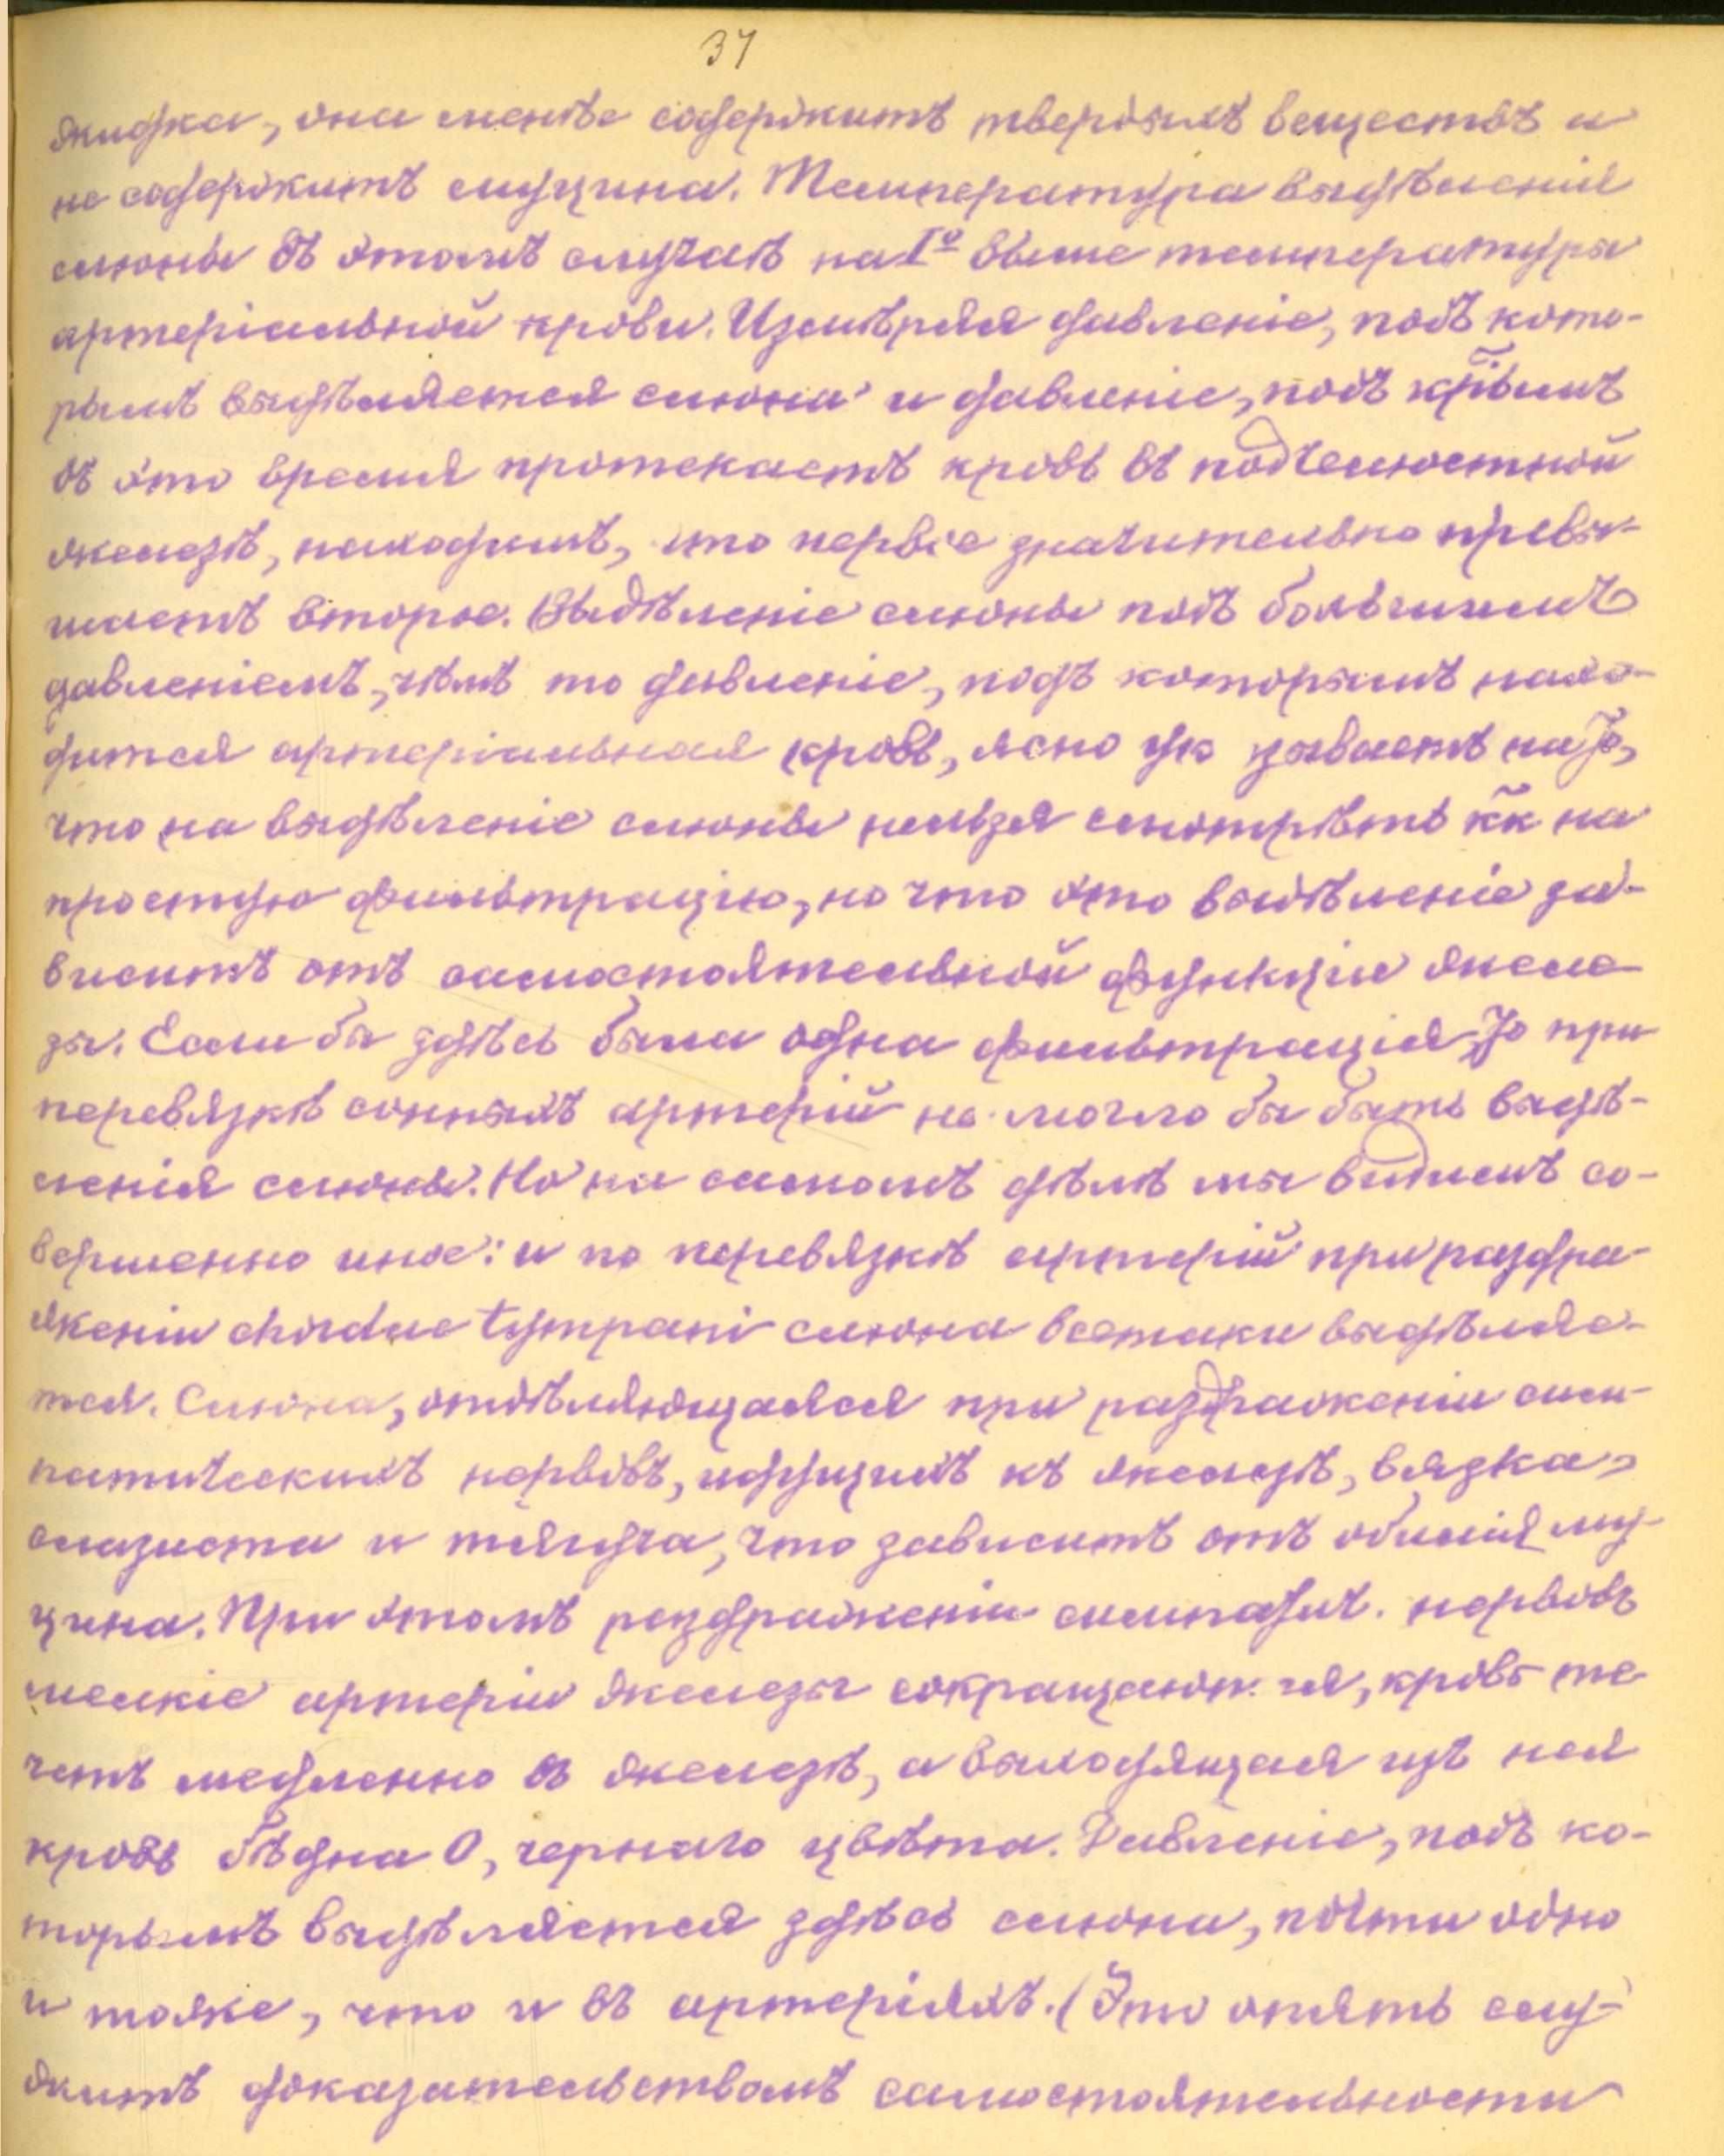 37
жидка, она менѣе содержитъ твердыхъ веществъ и
не содержитъ муцина. Температура выдѣленія
слюны въ этомъ случаѣ на 1º выше температуры
артеріальной крови. Измѣряя давленіе, подъ кото-
рымъ выдѣляется слюна и давленіе, подъ кр̃ымъ
въ это время протекаетъ кровь въ подчелюстной
железѣ, находимъ, что первое значительно превы-
шаетъ второе. Выдѣленіе слюны подъ большимъ
давленіемъ, чѣмъ то давленіе, подъ которымъ нахо-
дится артеріальная кровь, ясно указываетъ на то,
что на выдѣленіе слюны нельзя смотрѣть кк̃ на
простую фильтрацію, но что это выдѣленіе за-
виситъ отъ самостоятельной функціи желе-
зы. Если бы здѣсь была одна фильтрація, то при
перевязкѣ сонныхъ артерій не могло бы быть выдѣ-
ленія слюны. Но на самомъ дѣлѣ мы видимъ со-
вершенно иное: и по перевязкѣ артерій при раздра-
женіи chordae tympani слюна всетаки выдѣляе-
тся. Слюна, отдѣляющаяся при раздраженіи сим-
патическихъ нервовъ, идущихъ къ железѣ, вязка,
слизиста и тягуча, что зависитъ отъ обилія му-
цина. При этомъ раздраженіи симпатич. нервовъ
мелкіе артеріи железы сокращаются, кровь те-
четъ медленно въ железѣ, а выходящая изъ нея
кровь бѣдна О, чернаго цвѣта. Давленіе, подъ ко-
торымъ выдѣляется здѣсь слюна, почти одно
и тоже, что и въ артеріяхъ. (Это опять слу-
житъ доказательствомъ самостоятельности